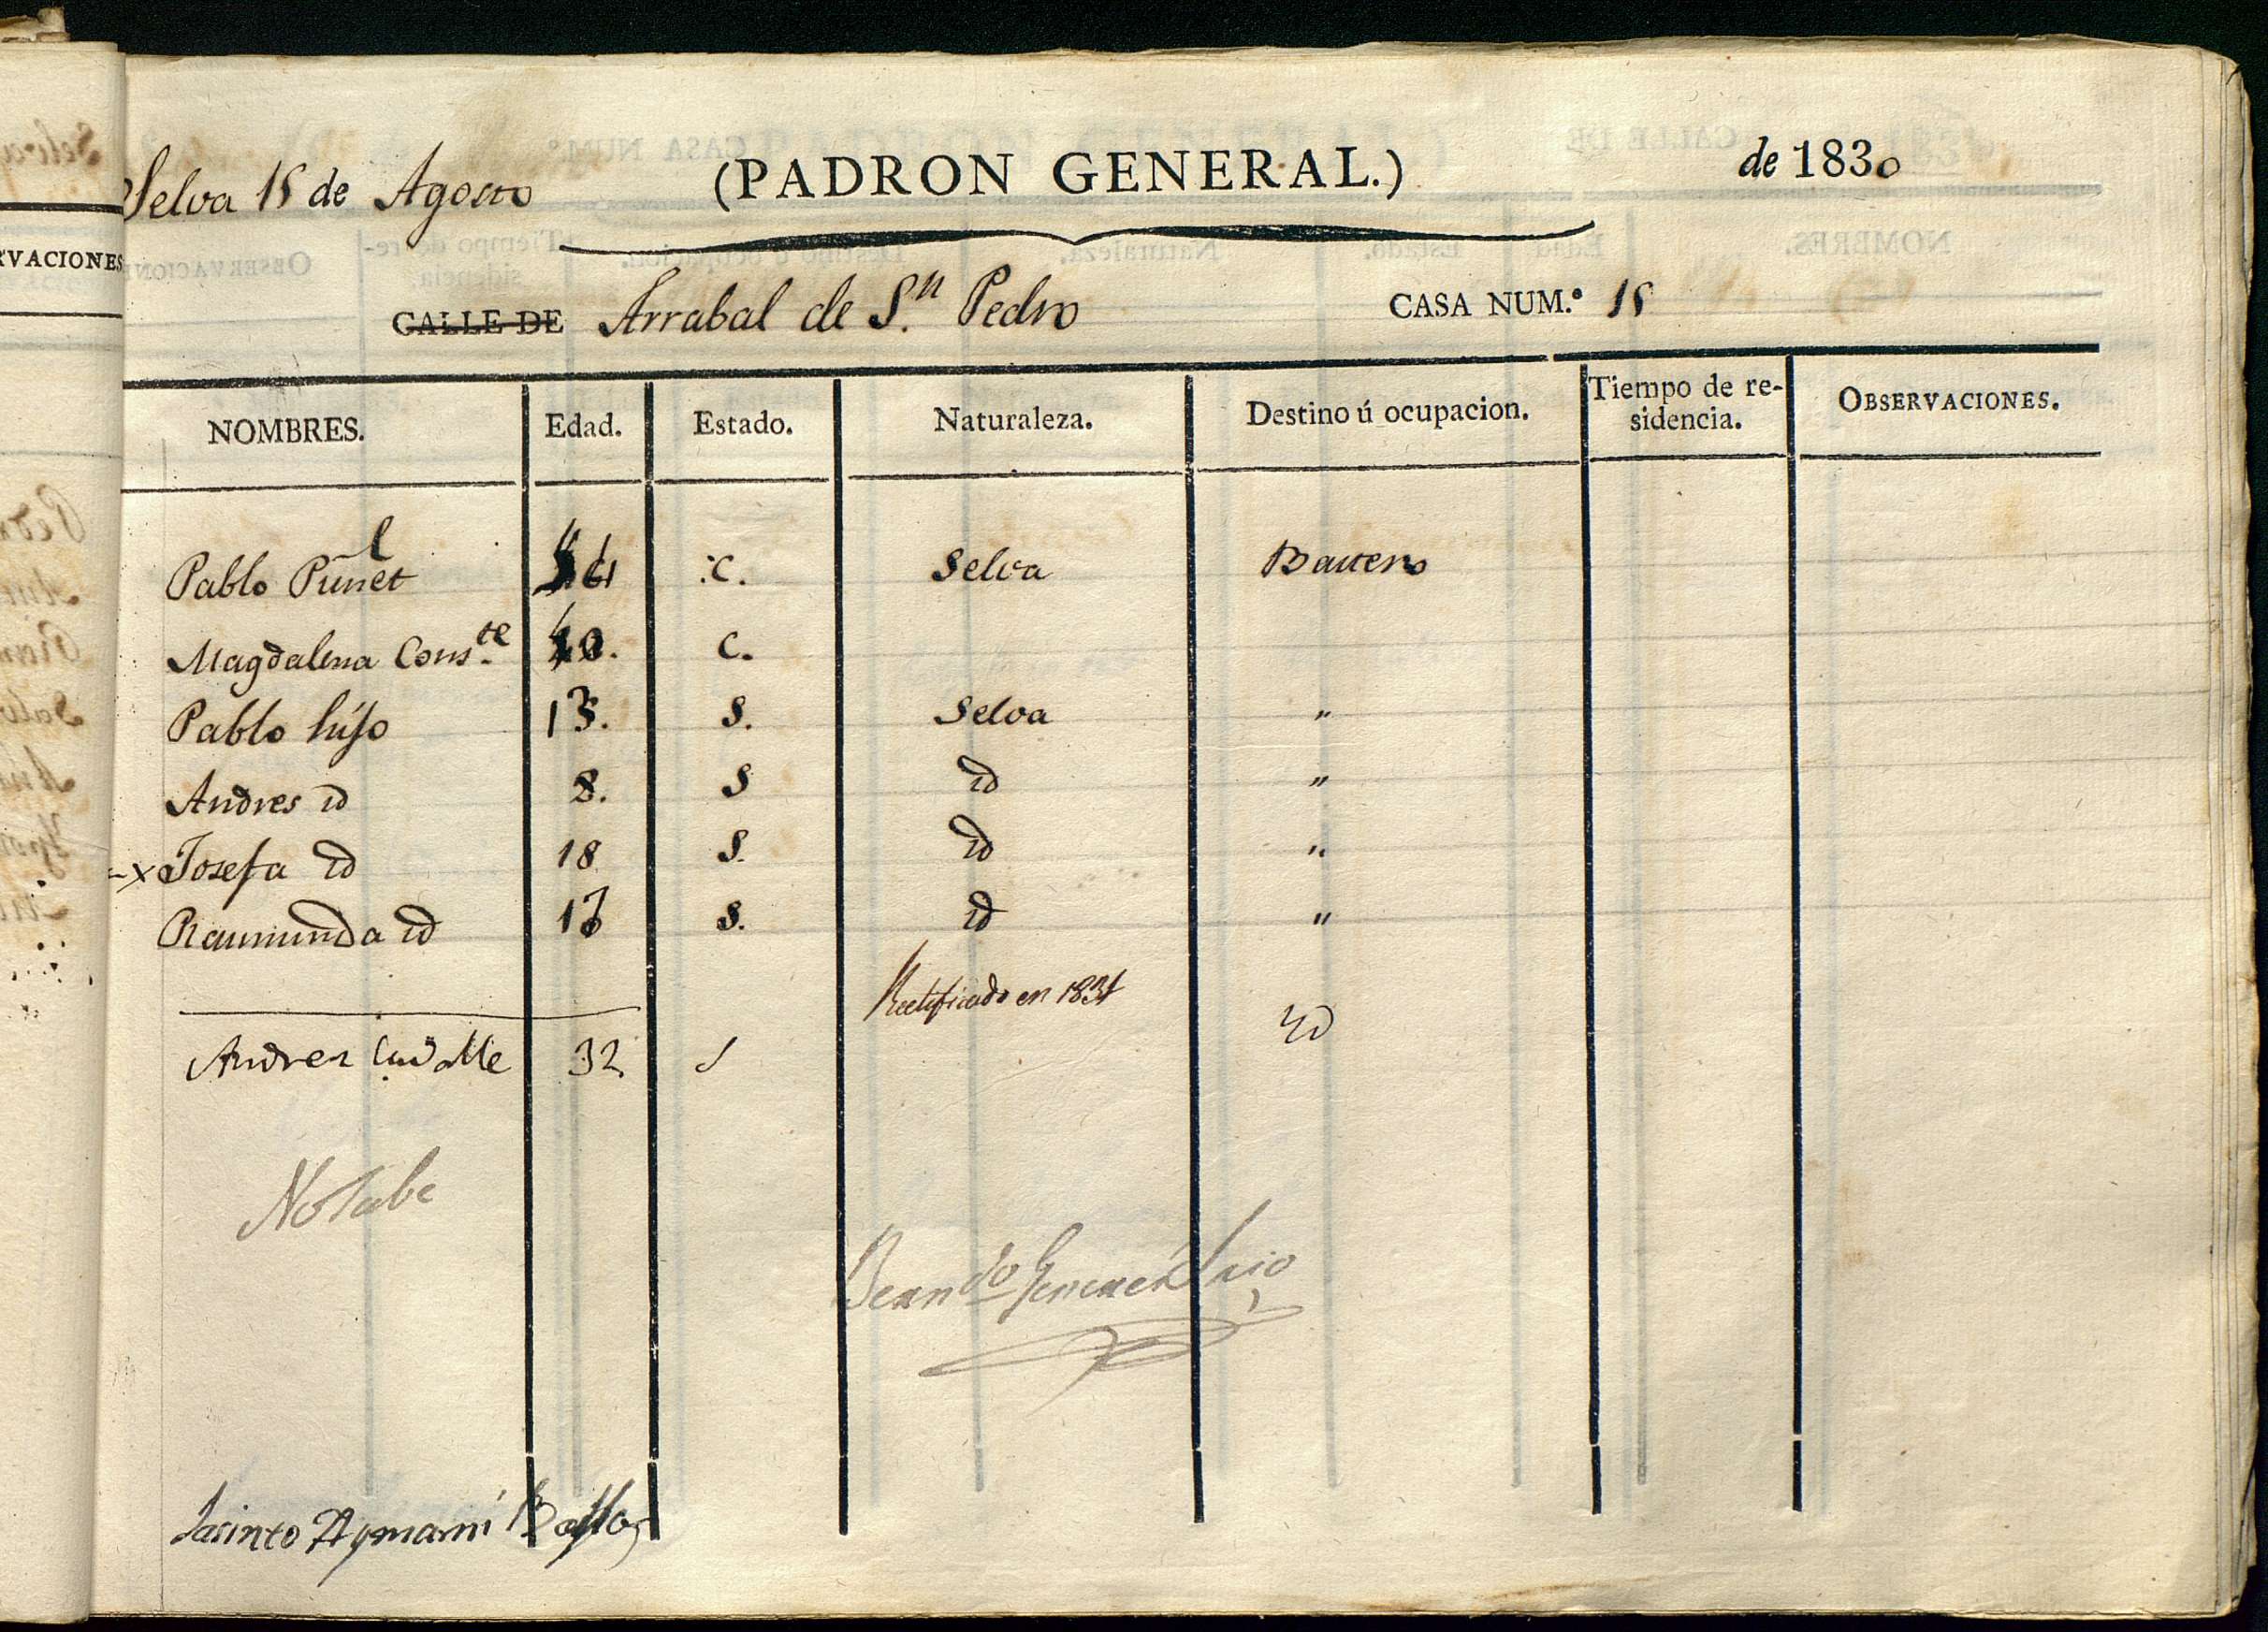 Selva 15 de Agosto (PADRON GENERAL.) de 1830
CALLE DE Arrabal de S.n Pedro CASA NUM.º 15
NOMBRES. Edad. Estado. Naturaleza. Destino ú ocupacion. Tiempo de residencia. OBSERVACIONES.
Pablo Puñet C. Selva
Magdalena Cons.te C.
Pablo hijo S. Selva "
Andres id 8. S id "
x Josefa id 18 S. id "
Raimunda id S. id "
Rectificado en 1831
Andres 32 S id
Notabe
Jasinto Aymamí Bayle